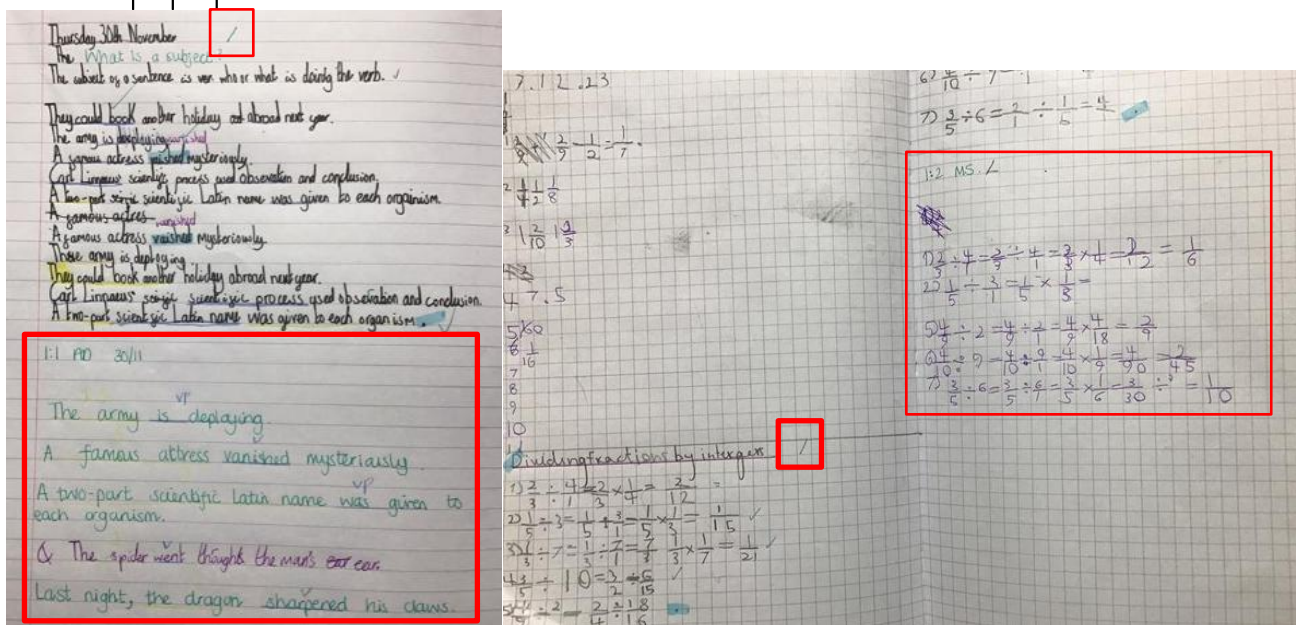 Thursday 30th November /
The What is a subject?
The subject of a sentence is who or what is doing the verb. ✓
They could book another holiday abroad next year.
The army is deploying vanished
A famous actress vished mysteriously.
Carl Linnaeus scientific process used observation and conclusion.
A two-part scientific Latin name was given to each orgainism.
A famous actres
vanished
A famous actress vaished mysteriously
These army is deploying
They could book another holiday abroad next year.
Carl Linnaeus' process used observation and conclusion.
A two-part scientific Latin name was given to each organism.
1:1 AD 30/11
VP
The army is deploying.
V
A famous attress vanished mysteriously.
VP
A two-part scientific Latin name was given to
each organism.
V
Q The spider went throught the man's ear ear.
V
Last night, the dragon sharpened his claws.
7.12.23
1 2/9 - 1/2 = 1/7.
2 1/4 1/2 1/8
3 1 2/10 1 2/3
4 7.5
5 60
6 1/16
7
8
9
10
Dividing fractions by intergers /
1) 2/3 ÷ 4/1 = 2/3 × 1/4 = 2/12 =
2) 1/5 ÷ 3 = 1/5 ÷ 3/1 = 1/5 × 1/3 = 1/15 ✓
3) 1/3 ÷ 7 = 1/3 ÷ 7/1 = 7/3 1/3 × 1/7 = 1/21 ✓
4 3/5 ÷ 10 = 3/2 ÷ 6/15 ✓
6) 4/10 ÷ 7 ÷ 1
7) 3/5 ÷ 6 = 2/1 ÷ 1/6 = 4/
1:2 MS. /
1) 2/3 ÷ 4 = 2/3 ÷ 4 = 2/3 × 1/4 = 2/12 = 1/6
2) 1/5 ÷ 3/1 = 1/5 × 1/3 =
5) 4/9 ÷ 2 = 4/9 ÷ 2/1 = 4/9 × 4/18 = 2/9
6) 4/10 ÷ 9 = 4/10 ÷ 9/1 = 4/10 × 1/9 = 4/90 = 2/45
7) 3/5 ÷ 6 = 3/5 ÷ 6/1 = 3/5 × 1/6 = 3/30 ÷ 3 = 1/10